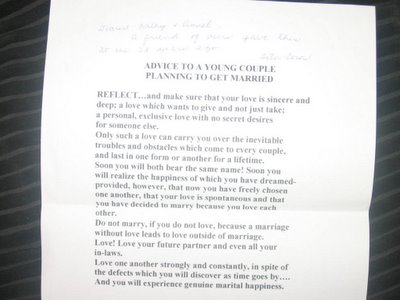 Kathy &
a friend of ours gave this
to us
ADVICE TO A YOUNG COUPLE
PLANNING TO GET MARRIED
REFLECT...and make sure that your love is sincere and
deep; a love which wants to give and not just take;
a personal, exclusive love with no secret desires
for someone else.
Only such a love can carry you over the inevitable
troubles and obstacles which come to every couple,
and last in one form or another for a lifetime.
Soon you will both bear the same name! Soon you
will realize the happiness of which you have dreamed-
provided, however, that now you have freely chosen
one another, that your love is spontaneous and that
you have decided to marry because you love each
other.
Do not marry, if you do not love, because a marriage
without love leads to love outside of marriage.
Love! Love your future partner and even all your
in-laws.
Love one another strongly and constantly, in spite of
the defects which you will discover as time goes by....
And you will experience genuine marital happiness.